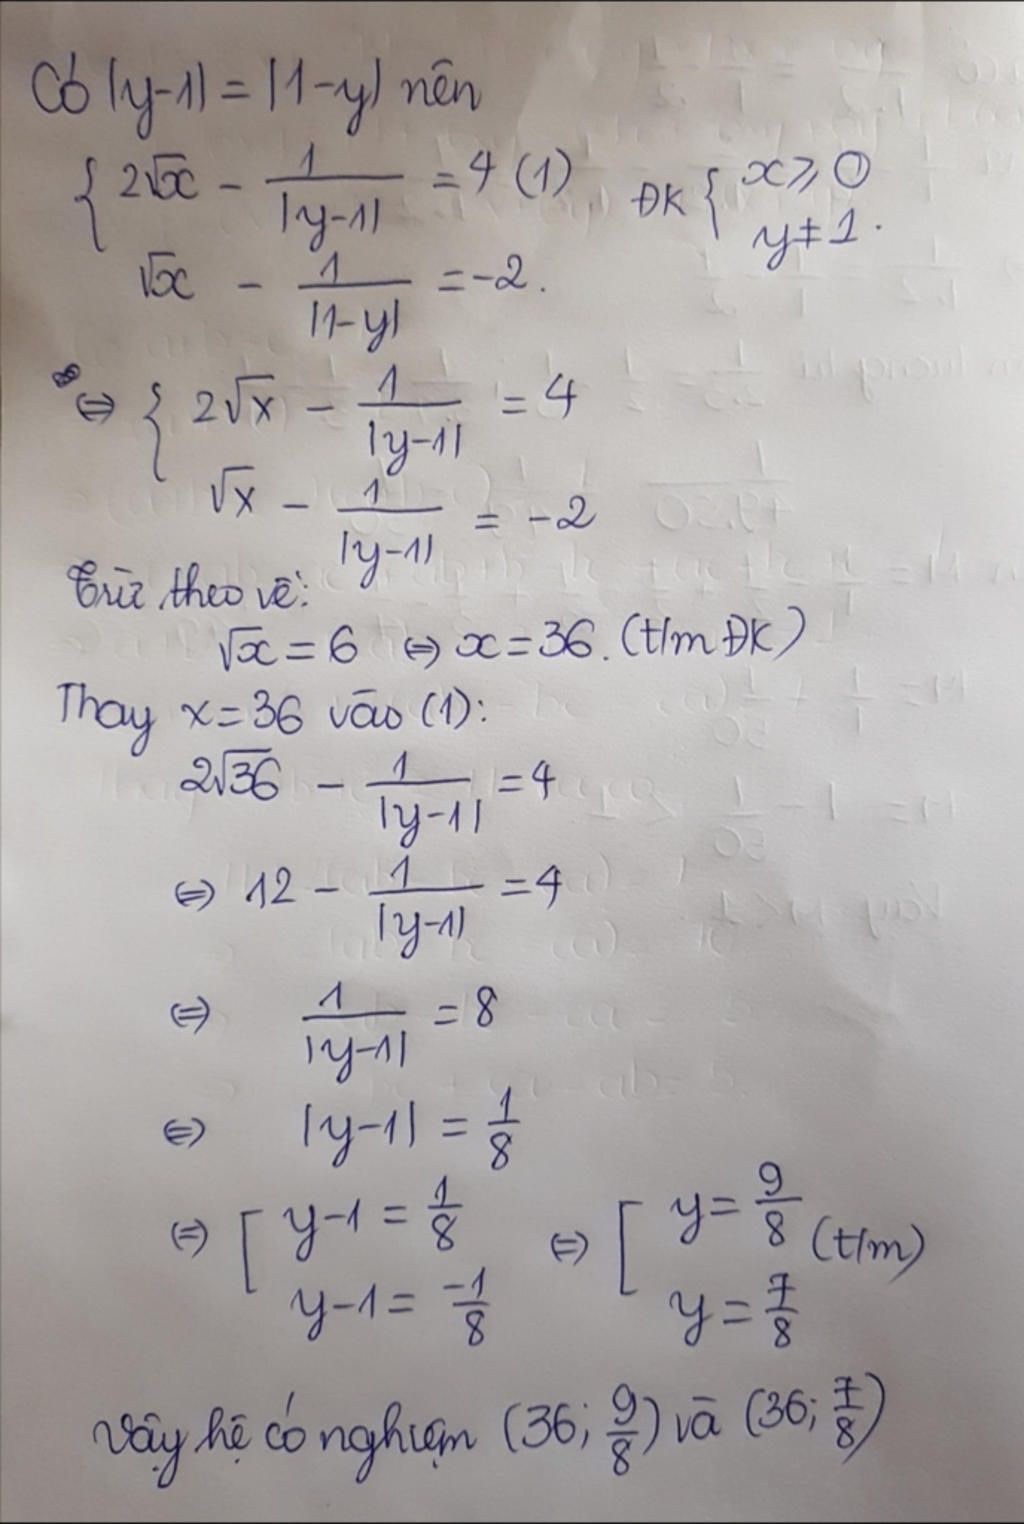 Có |y-1| = |1-y| nên
{ 2√x - 1/|y-1| = 4 (1) ĐK { x ⩾ 0
y ≠ 1.
√x - 1/|1-y| = -2.
⇔ { 2√x - 1/|y-1| = 4
√x - 1/|y-1| = -2
Trừ theo vế:
√x = 6 ⇔ x = 36. (t/m ĐK)
Thay x = 36 vào (1):
2√36 - 1/|y-1| = 4
⇔ 12 - 1/|y-1| = 4
⇔ 1/|y-1| = 8
⇔ |y-1| = 1/8
⇔ [ y-1 = 1/8 ⇔ [ y = 9/8 (t/m)
y-1 = -1/8 y = 7/8
Vậy hệ có nghiệm (36; 9/8) và (36; 7/8)